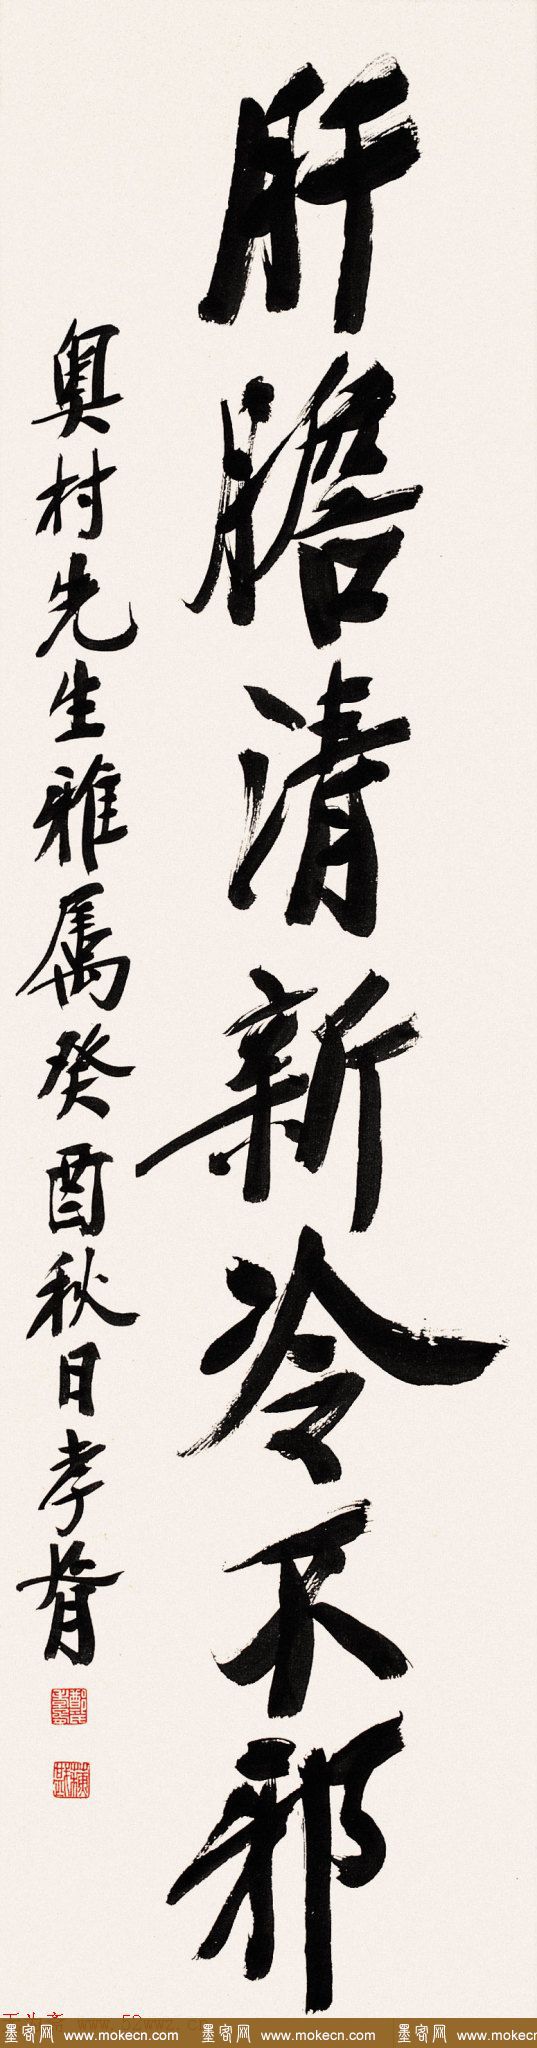 肝膽清新冷不邪
奥村先生雅属癸酉秋日孝胥
墨客网 www.mokecn.com 墨客网 www.mokecn.com 墨客网 www.mokecn.com